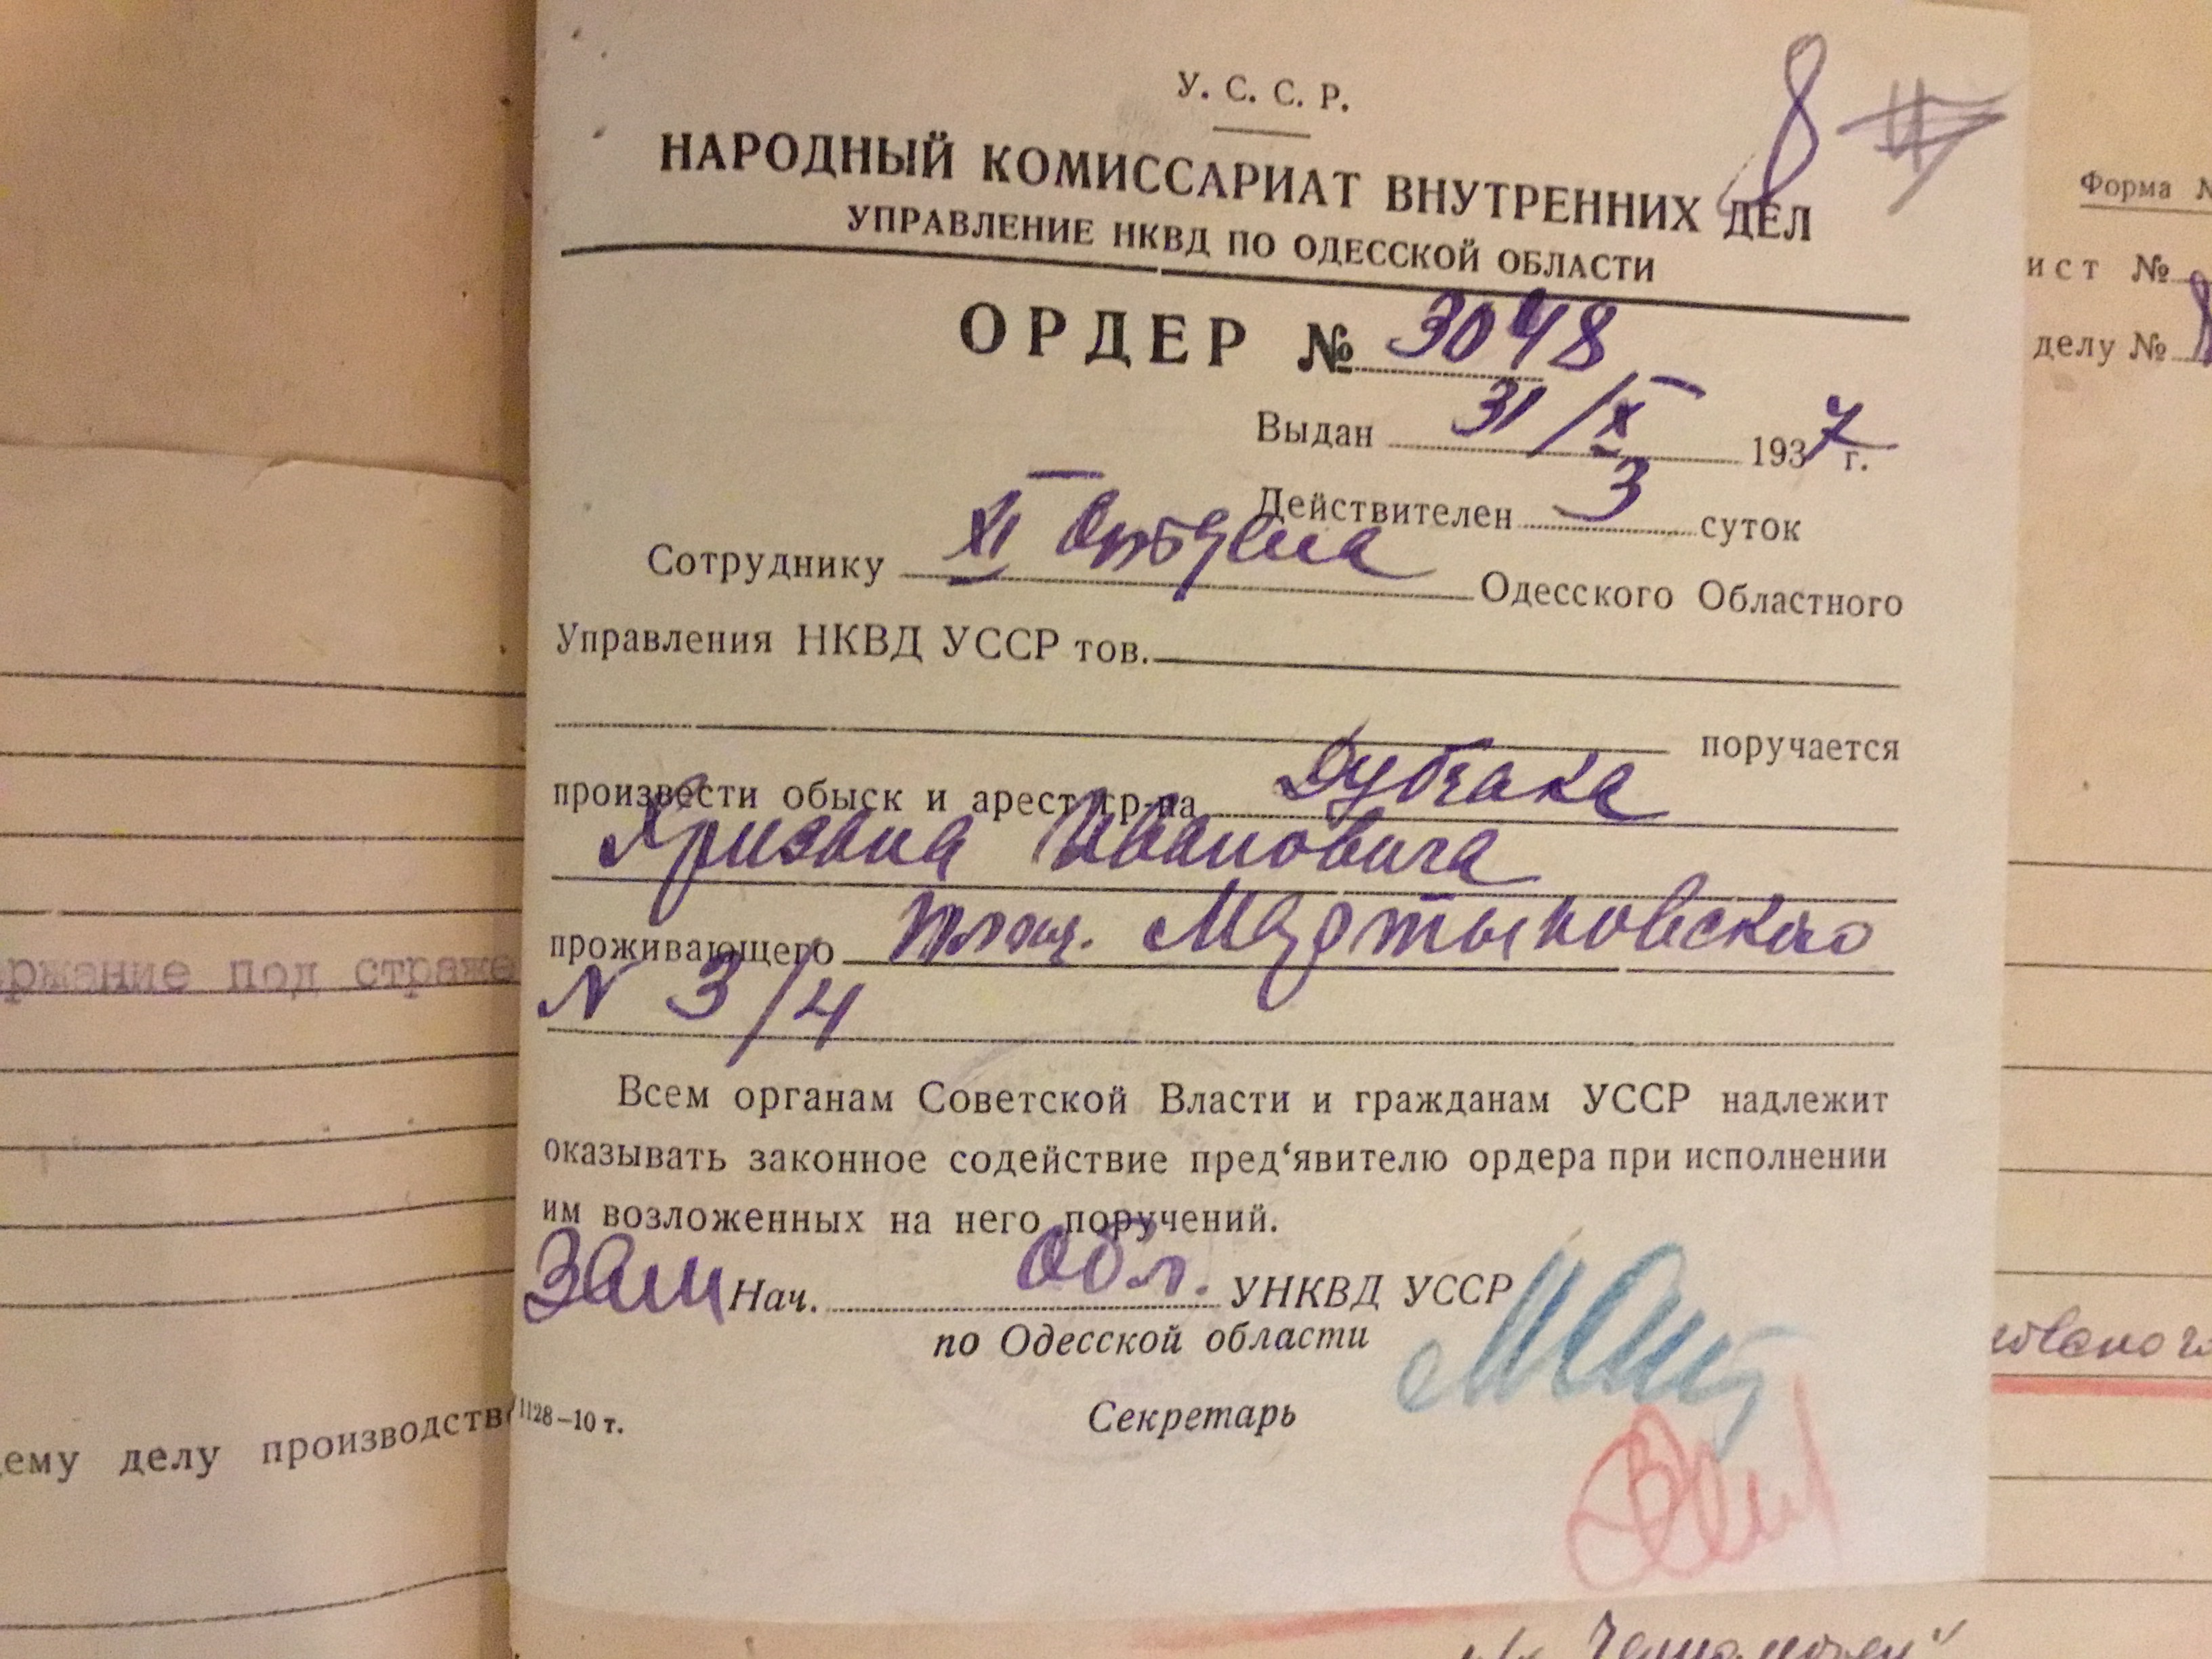 У. С. С. Р.
8
НАРОДНЫЙ КОМИССАРИАТ ВНУТРЕННИХ ДЕЛ
УПРАВЛЕНИЕ НКВД ПО ОДЕССКОЙ ОБЛАСТИ
ОРДЕР № 3048
Выдан 31/X 1937 г.
Действителен 3 суток
Сотруднику XI Отдела Одесского Областного
Управления НКВД УССР тов.
поручается
произвести обыск и арест гр-на Дубчака
Хризана Ивановича
проживающего площ. Мартыновского
N 3/4
Всем органам Советской Власти и гражданам УССР надлежит
оказывать законное содействие пред‘явителю ордера при исполнении
им возложенных на него поручений.
Зам Нач. Обл. УНКВД УССР
по Одесской области
Секретарь
1128–10 т.
ржание под страже
ему делу производств
Форма №
ист №
делу №